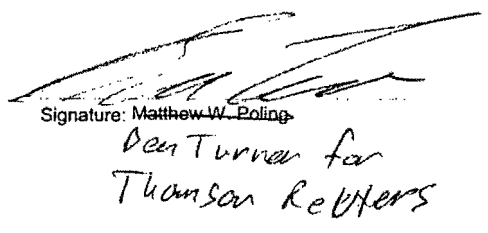 Signature: Matthew W. Poling
Ben Turner for
Thomson Reuters